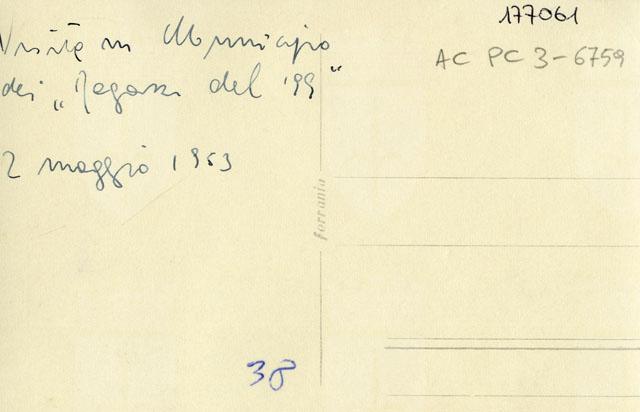 Visita in Municipio
dei "Ragazzi del '99"
2 maggio 1963
177061
AC PC 3-6759
Ferrania
38